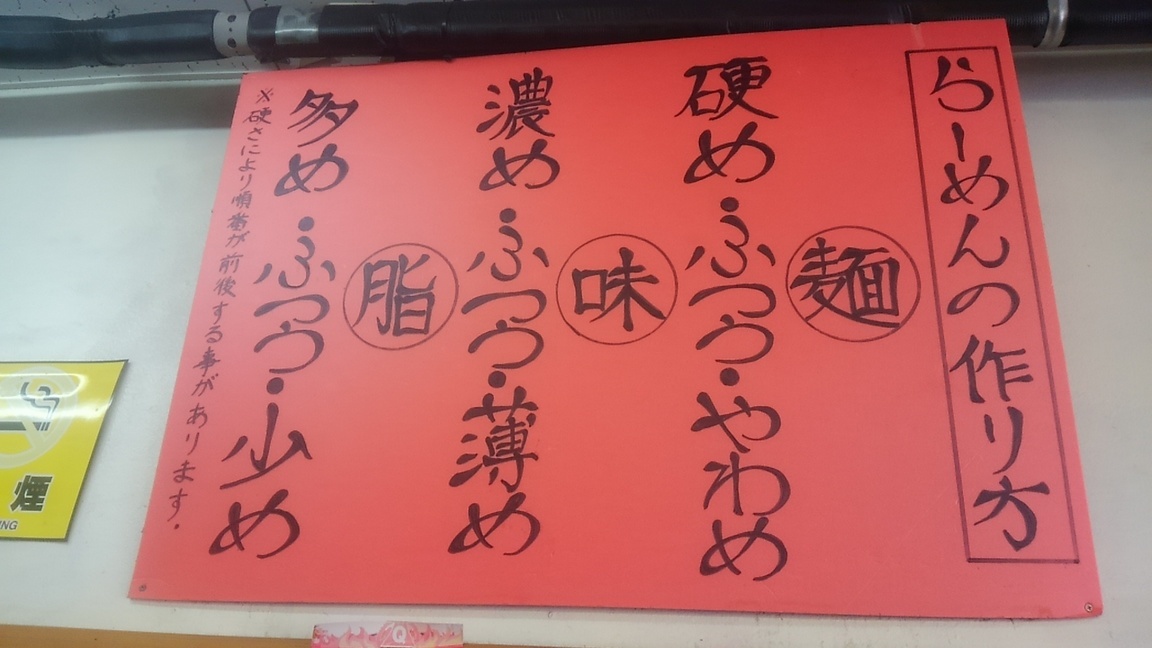 らーめんの作り方
麺
硬め・ふつう・やわめ
味
濃め・ふつう・薄め
脂
多め・ふつう・少め
※硬さにより順番が前後する事があります。
煙
NG
Q